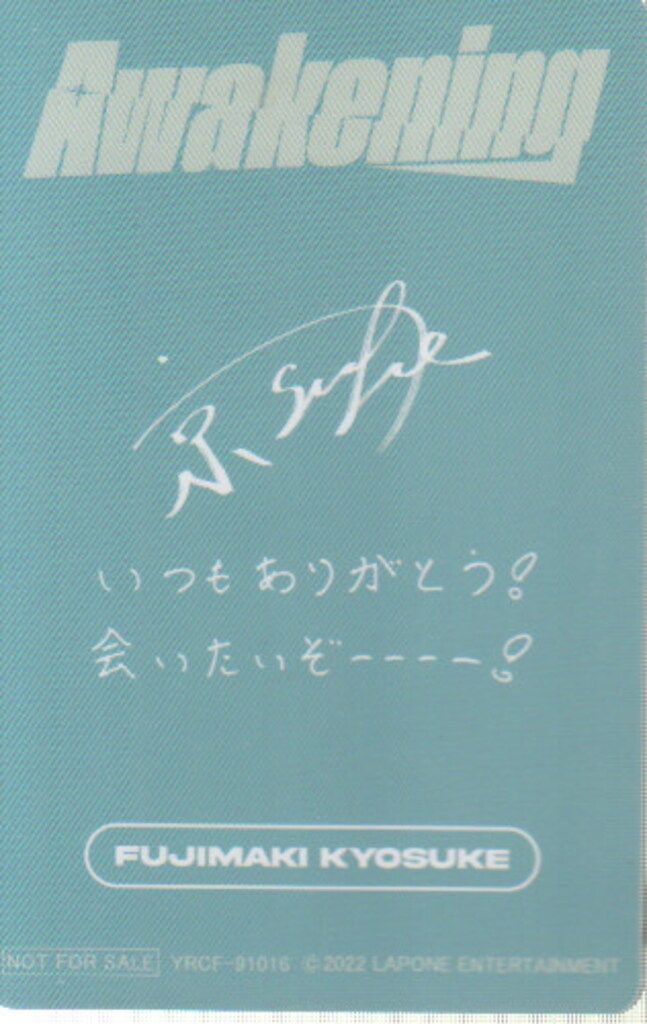 Awakening
いつもありがとう!
会いたいぞーーーー!
FUJIMAKI KYOSUKE
NOT FOR SALE YRCF-91016 ©2022 LAPONE ENTERTAINMENT